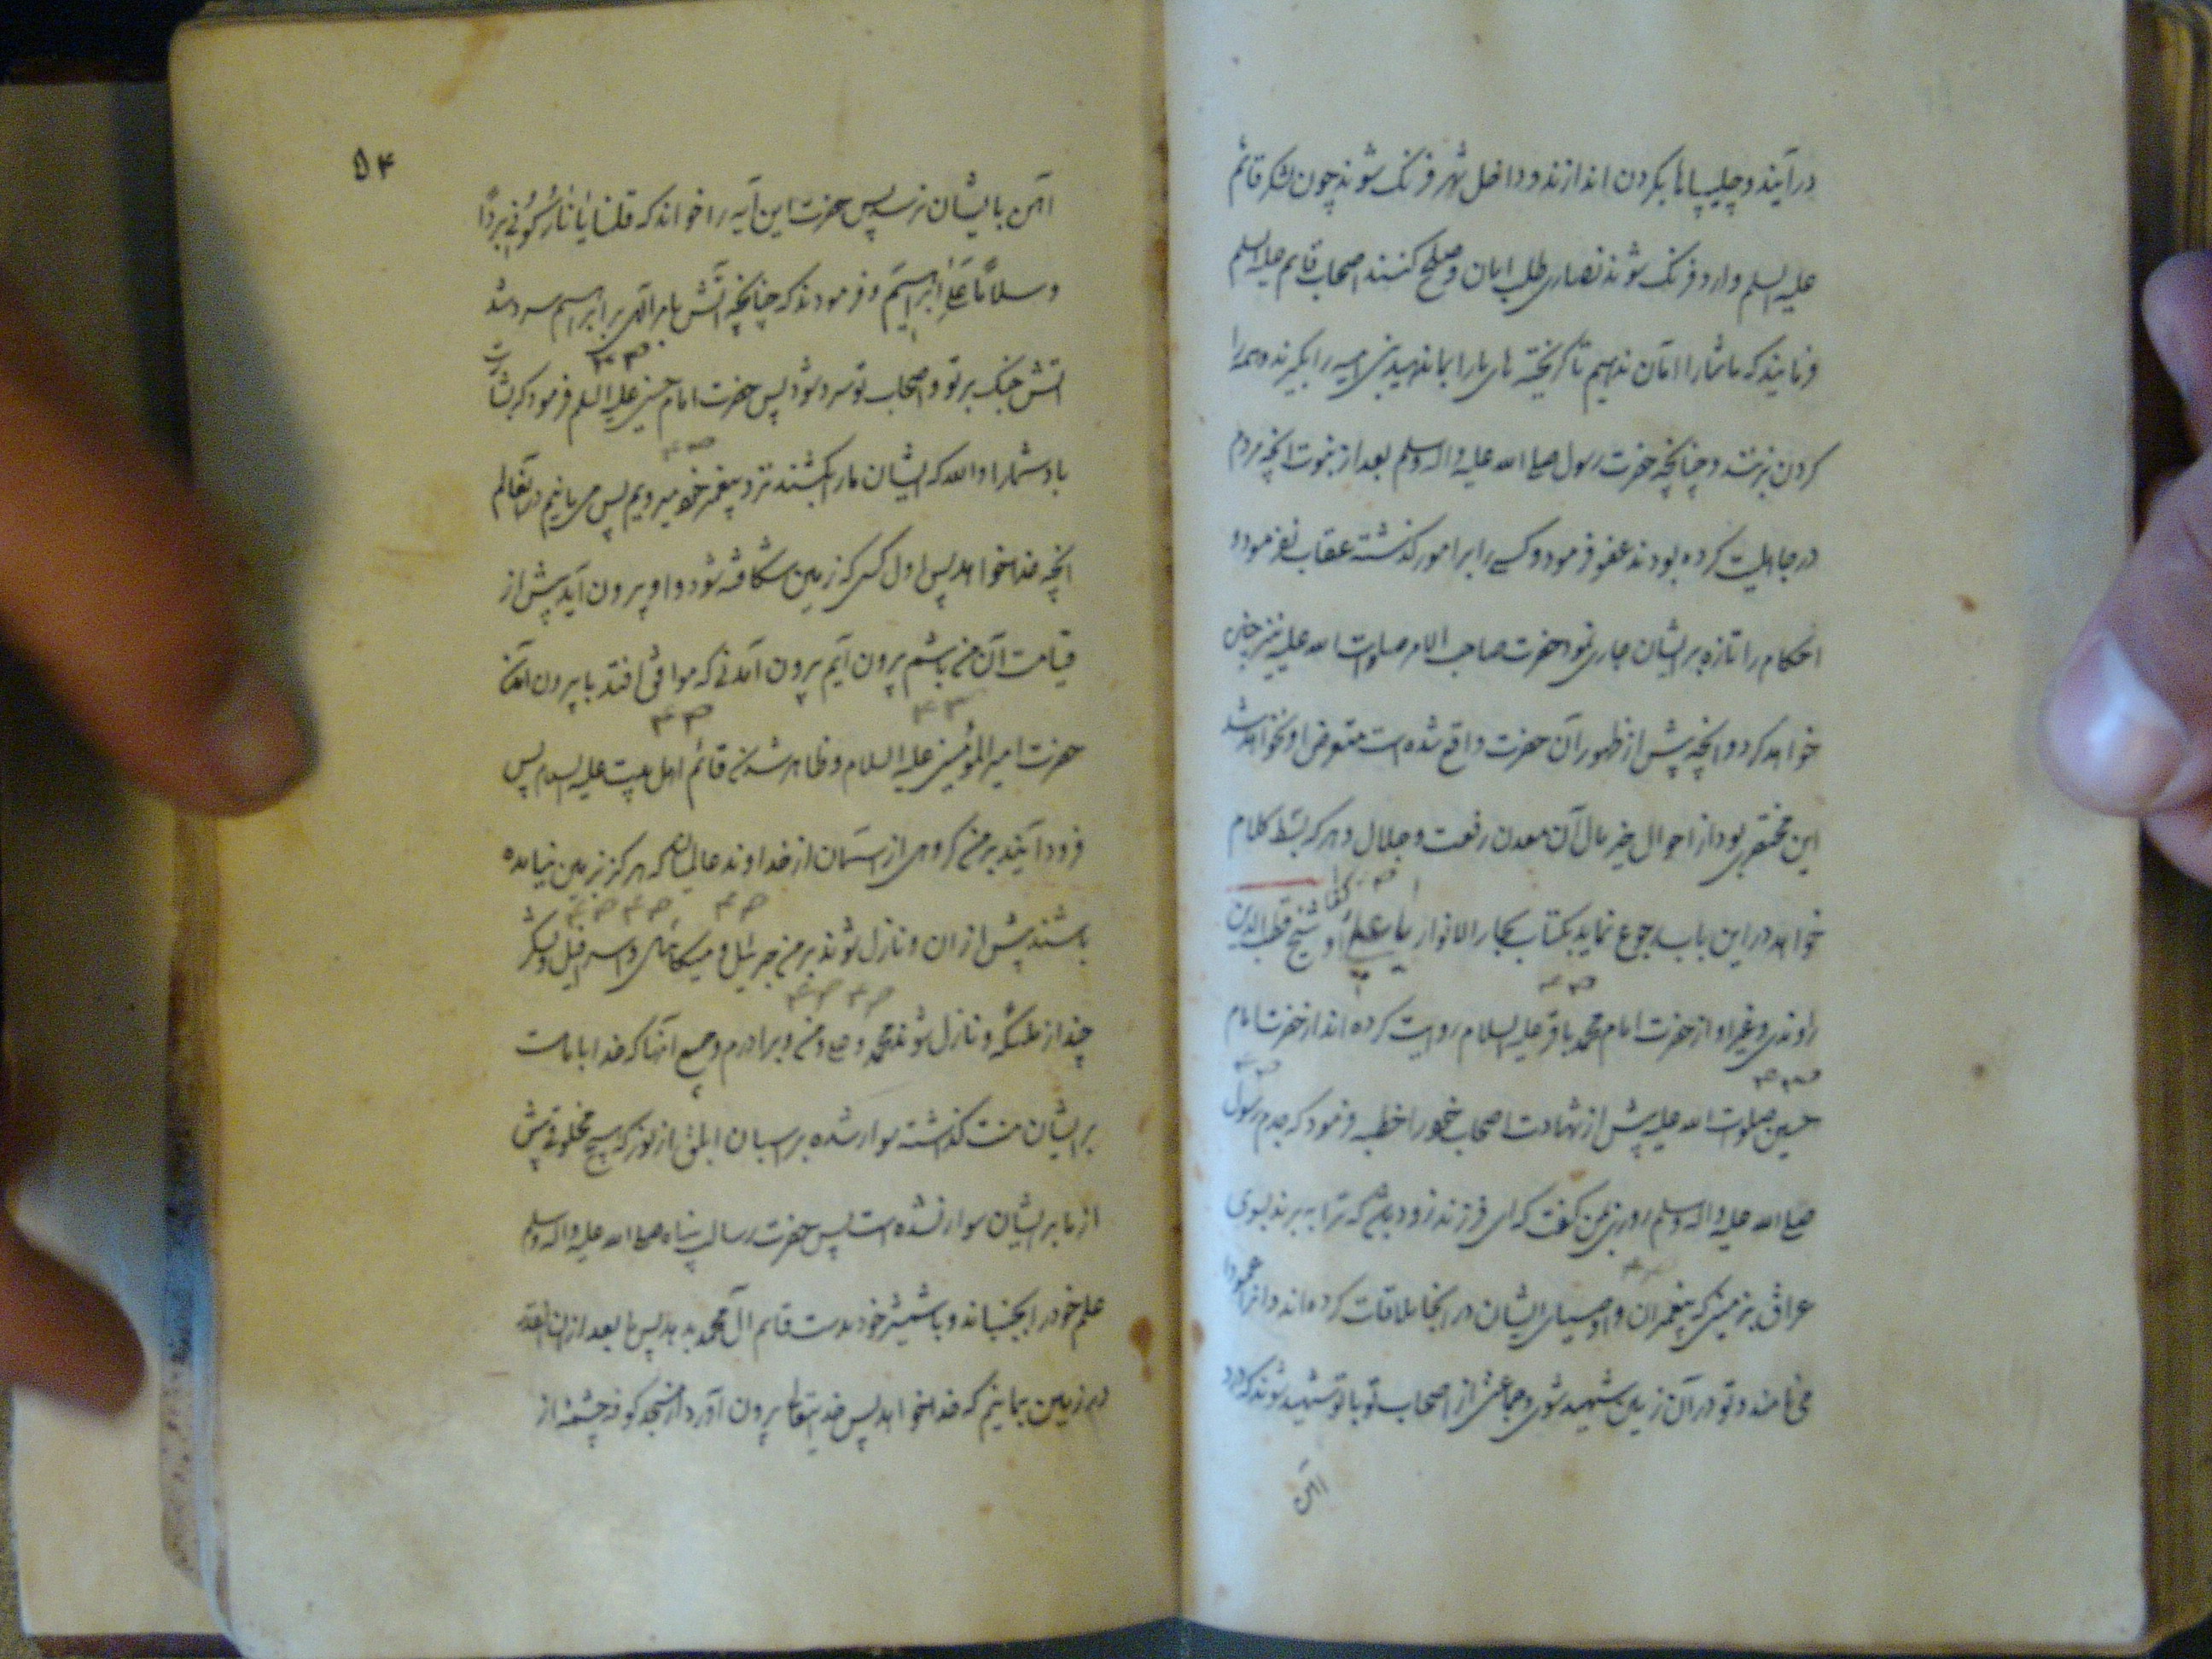 درآیند و چلیپاها بگردن اندازند و داخل شهر فرنگ شوند چون لشکر قائم
علیه السلم وارد فرنگ شوند نصاری طلب امان و صلح کنند اصحاب قایم علیه السلم
فرمایند که ما شما را امان ندهیم تا گریخته های ما را بما ندهید بنی امیه را بگیرند و همه را
گردن بزنند و چنانچه حضرت رسول صلی الله علیه واله وسلم بعد از نبوت آنچه مردم
در جاهلیت کرده بودند عفو فرمود و کسی را بر امور گذشته عقاب نفرمود و
احکام را تازه بر ایشان جاری نمود حضرت صاحب الامر صلوات الله علیه نیز چنان
خواهد کرد و آنچه پیش از ظهور آن حضرت واقع شده است متعرض او نخواهد شد
این مختصری بود از احوال خیر مال آن معدن رفعت و جلال و هر که بسط کلام
خواهد در این باب رجوع نماید بکتاب بحار الانوار و شیخ قطب الدین
راوندی و غیر او از حضرت امام محمد باقر علیه السلام روایت کرده اند از حضرت امام
حسین صلوات الله علیه پیش از شهادت اصحاب خود را خطبه فرمود که جدم رسول
صلی الله علیه واله وسلم روزی بمن گفت که ای فرزند زود باشد که ترا ببرند بسوی
عراق بزمینی که پیغمبران و اوصیای ایشان در آنجا ملاقات کرده اند و آنرا عمورا
می نامند و تو در آن زمین شهید شوی و جماعتی از اصحاب تو با تو شهید شوند که درد
آهن
۵۴
آهن بایشان نرسد پس حضرت این آیه را خواند که قلنا یا نار کونی بردا
و سلاما علی ابراهیم و فرمودند که چنانچه آتش بامر الهی بر ابراهیم سرد شد
آتش جنگ بر تو و اصحاب تو سرد شود پس حضرت امام حسین علیه السلم فرمود که بشارت
باد شما را والله که ایشان ما را بکشند نزد پیغمبر خود میرویم پس می مانیم در آن عالم
آنچه خدا خواهد پس اول کسی که زمین شکافته شود و او بیرون آید پیش از
قیامت آن من باشم بیرون آیم بیرون آمدنی که موافق افتد با بیرون آمدن
حضرت امیر المؤمنین علیه السلام و ظاهر شدن قائم اهل بیت علیه السلام پس
فرود آیند بر من گروهی از آسمان از خداوند عالمیان که هرگز بزمین نیامده
باشند پیش از آن و نازل شوند بر من جبرئیل و میکائیل و اسرافیل و لشکری
چند از ملئکه و نازل شوند محمد و علی و من و برادرم و جمیع آنها که خدا بامامت
بر ایشان منت گذشته سوار شده بر اسبان ابلق از نور که هیچ مخلوقی پیش
از ما بر ایشان سوار نشده است پس حضرت رسالت پناه صلی الله علیه واله وسلم
علم خود را بجنباند و با شمشیر خود بدست قایم ال محمد بدهد پس ما بعد از ان آنقدر
در زمین بمانیم که خدا خواهد پس خدایتعالی بیرون آورد از مسجد کوفه چشمهٔ از